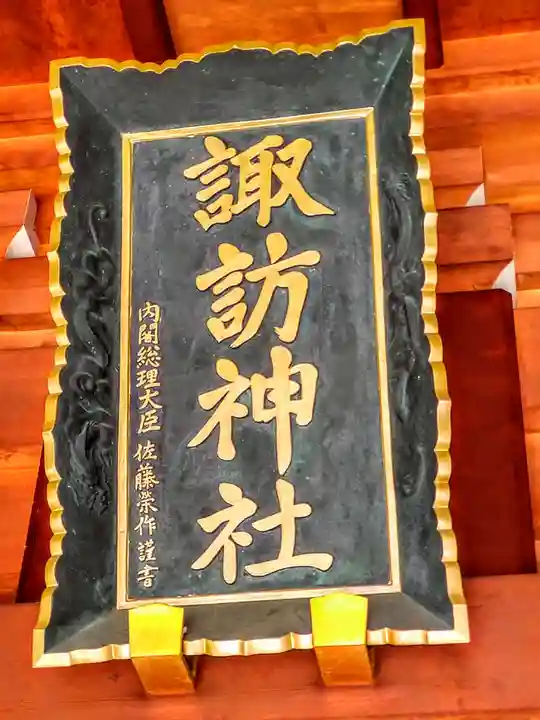 諏訪神社
内閣総理大臣 佐藤榮作謹書